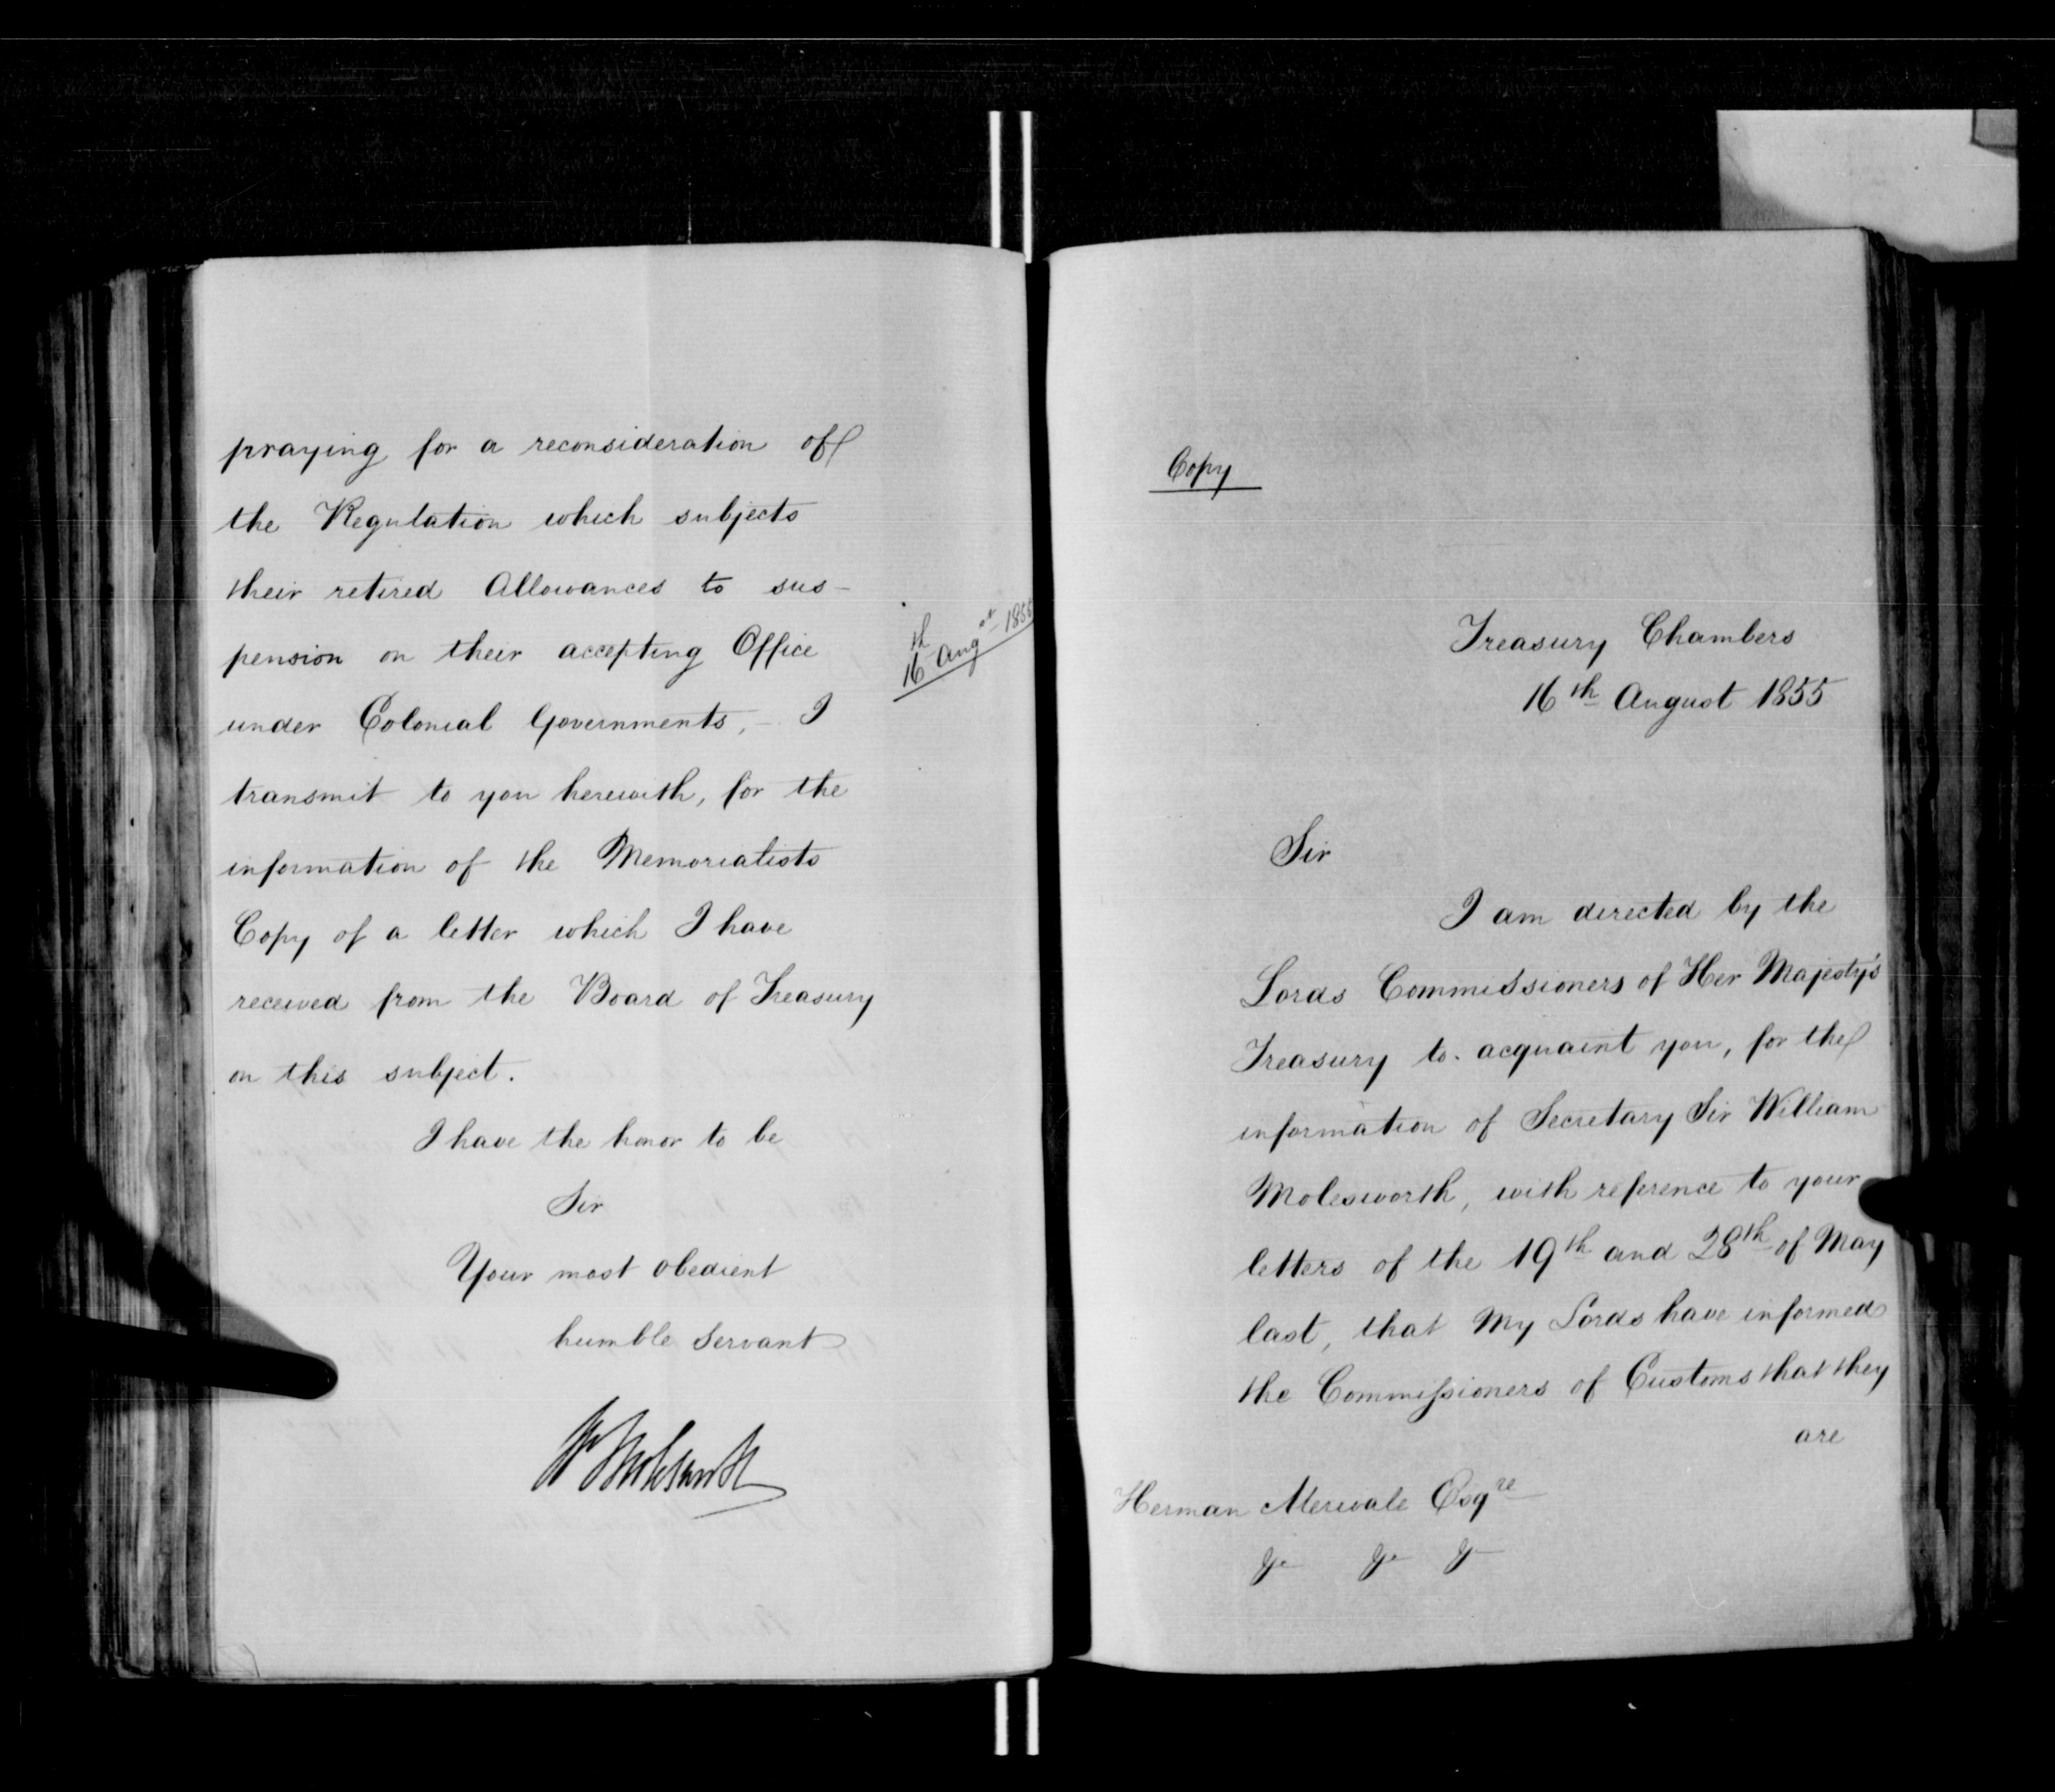 praying for a reconsideration of
the Regulation which subjects
their retired Allowances to sus-
pension on their accepting Office
under Colonial Governments, - I
transmit to you herewith, for the
information of the Memorialists
Copy of a letter which I have
received from the Board of Treasury
on this subject.
I have the honor to be
Sir
Your most obedient
humble Servant
W Molesworth
16th Augst 1855
Copy
Treasury Chambers
16th August 1855
Sir
I am directed by the
Lords Commissioners of Her Majesty's
Treasury to acquaint you, for the
information of Secretary Sir William
Molesworth, with reference to your
letters of the 19th and 28th of May
last, that My Lords have informed
the Commissioners of Customs that they
are
Herman Merivale Esqre
&c &c &c